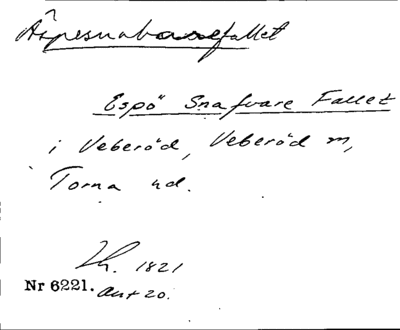 Äspesnabarefallet
Espö Snafvare Fallet
i Veberöd, Veberöd m,
Torna hd.
Lh. 1821
Nr 6221. Akt 20.